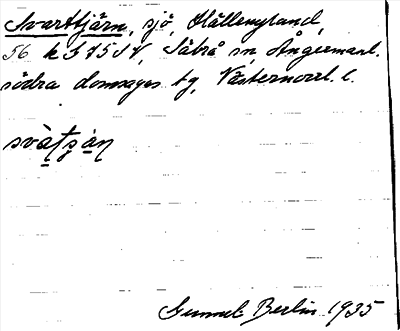 Svarttjärn, sjö, Hällenyland,
56 k S 75 SV, Säbrå sn, Ångermanl.
södra domsagas tg, Västernorrl. l.
svàt̯ʂä̀ṇ
Gunnel Berlin 1935